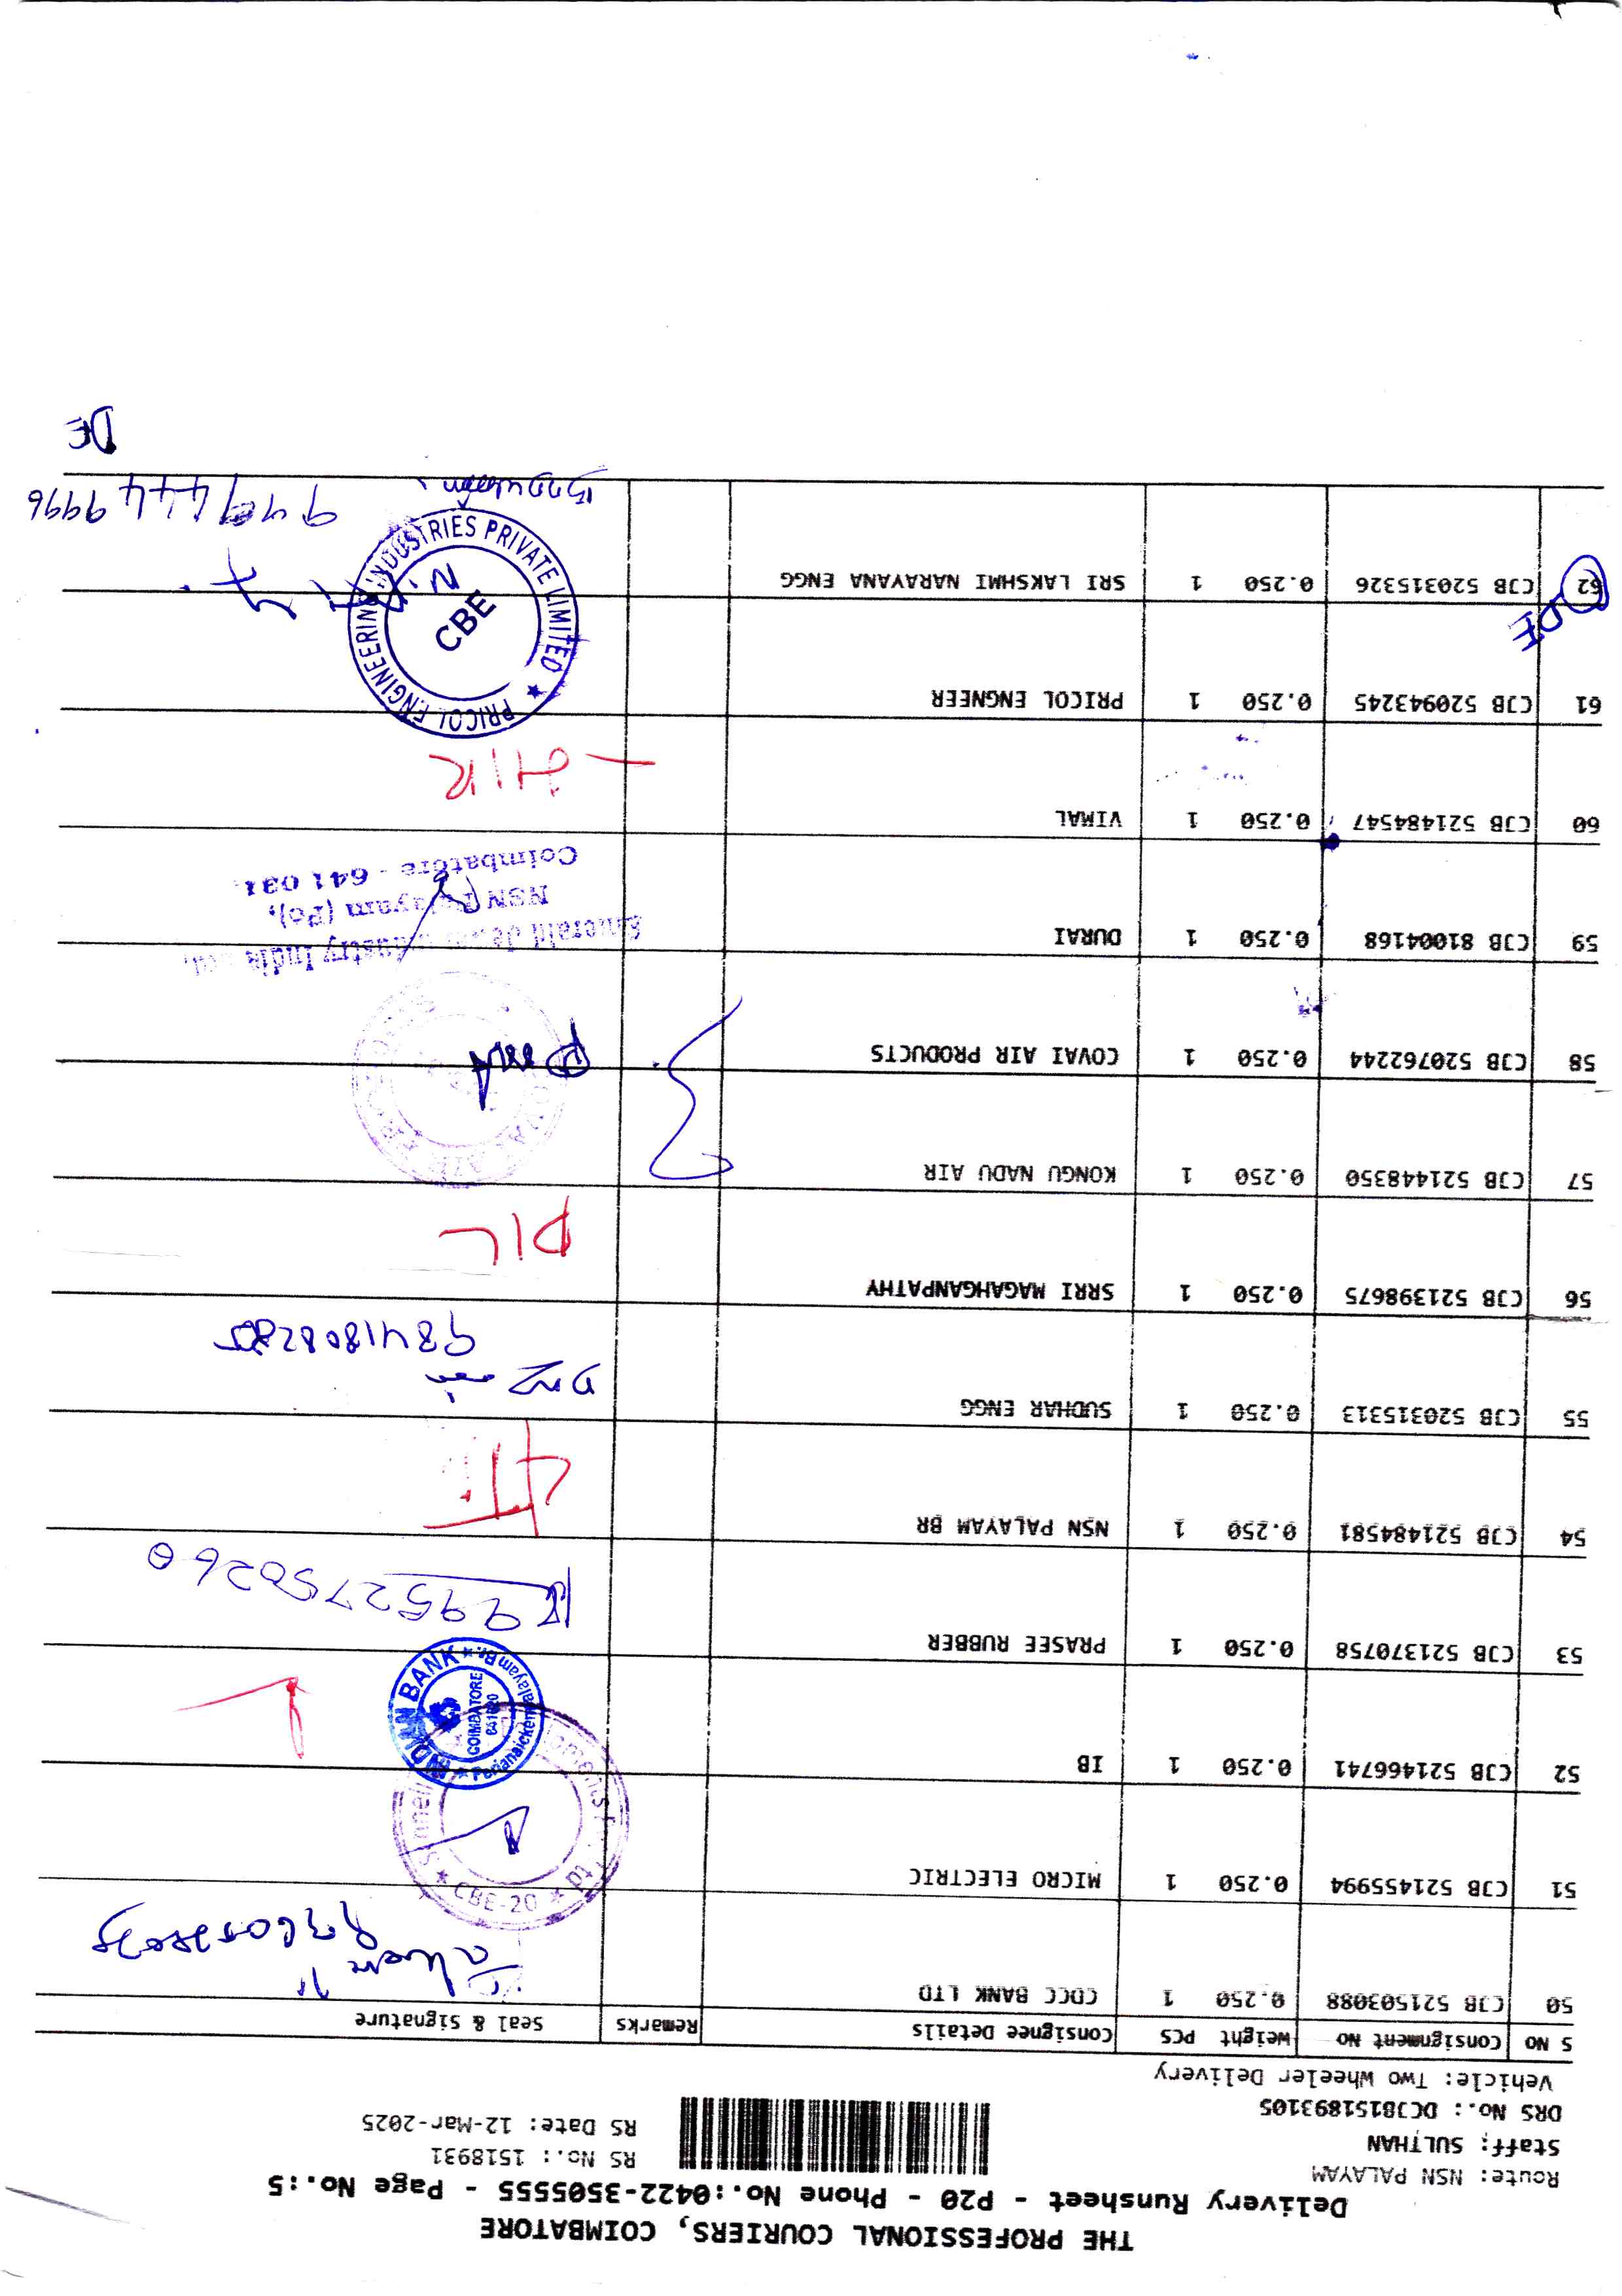 THE PROFESSIONAL COURIERS, COIMBATORE
Delivery Runsheet - P20 - Phone No.:0422-3505555 - Page No.:5
Route: NSN PALAYAM
Staff: SULTHAN
DRS No.: DCJB151893105
Vehicle: Two Wheeler Delivery
RS No.: 1518931
RS Date: 12-Mar-2025
S NO Consignment No Weight PCS Consignee Details Remarks Seal & Signature
50 CJB 521503088 0.250 1 CDCC BANK LTD
51 CJB 521455994 0.250 1 MICRO ELECTRIC
CBE-20
52 CJB 521466741 0.250 1 IB
COIMBATORE
53 CJB 521370758 0.250 1 PRASEE RUBBER
9952750260
54 CJB 521484581 0.250 1 NSN PALAYAM BR
55 CJB 520315313 0.250 1 SUDHAR ENGG
56 CJB 521398675 0.250 1 SRRI MAGAHGANPATHY
57 CJB 521448350 0.250 1 KONGU NADU AIR
58 CJB 520762244 0.250 1 COVAI AIR PRODUCTS
59 CJB 81004168 0.250 1 DURAI
Emerald Industry India
NSN Palayam (Po),
Coimbatore - 641 031.
60 CJB 521484547 0.250 1 VIMAL
61 CJB 520943245 0.250 1 PRICOL ENGNEER
PRICOL ENGINEERING INDUSTRIES PRIVATE LIMITED
CBE
62 CJB 520315326 0.250 1 SRI LAKSHMI NARAYANA ENGG
DE
DE